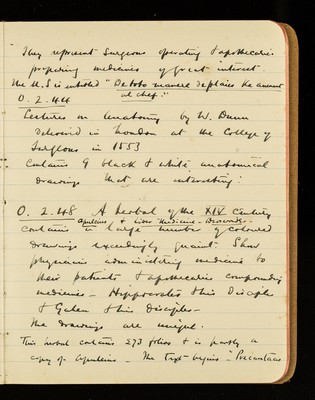 They represent Surgeons operating & apothecaries
preparing medicines of great interest.
The M.S is entitled "De toto
al chef."
O. 2. 44
Lectures on Anatomy by W. Bunn
delivered in London at the College of
Surgeons in 1553
Contains 9 black & white anatomical
drawings that are interesting:
O. 2. 48 A herbal of the XIV Century
Apuleius & Liber Medicinae Dioscorides
contains a large number of coloured
drawings exceedingly quaint. Show
physicians administering medicine to
their patients & apothecaries compounding
medicines - Hippocrates & his Disciple
& Galen & his Disciples -
The drawings are unique.
This herbal contains 273 folios & is partly a
copy of Apuleius - The Text begins "